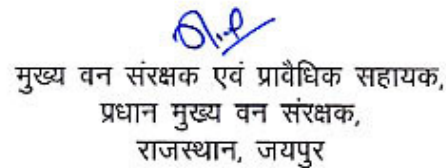 मुख्य वन संरक्षक एवं प्रावैधिक सहायक,
प्रधान मुख्य वन संरक्षक,
राजस्थान, जयपुर